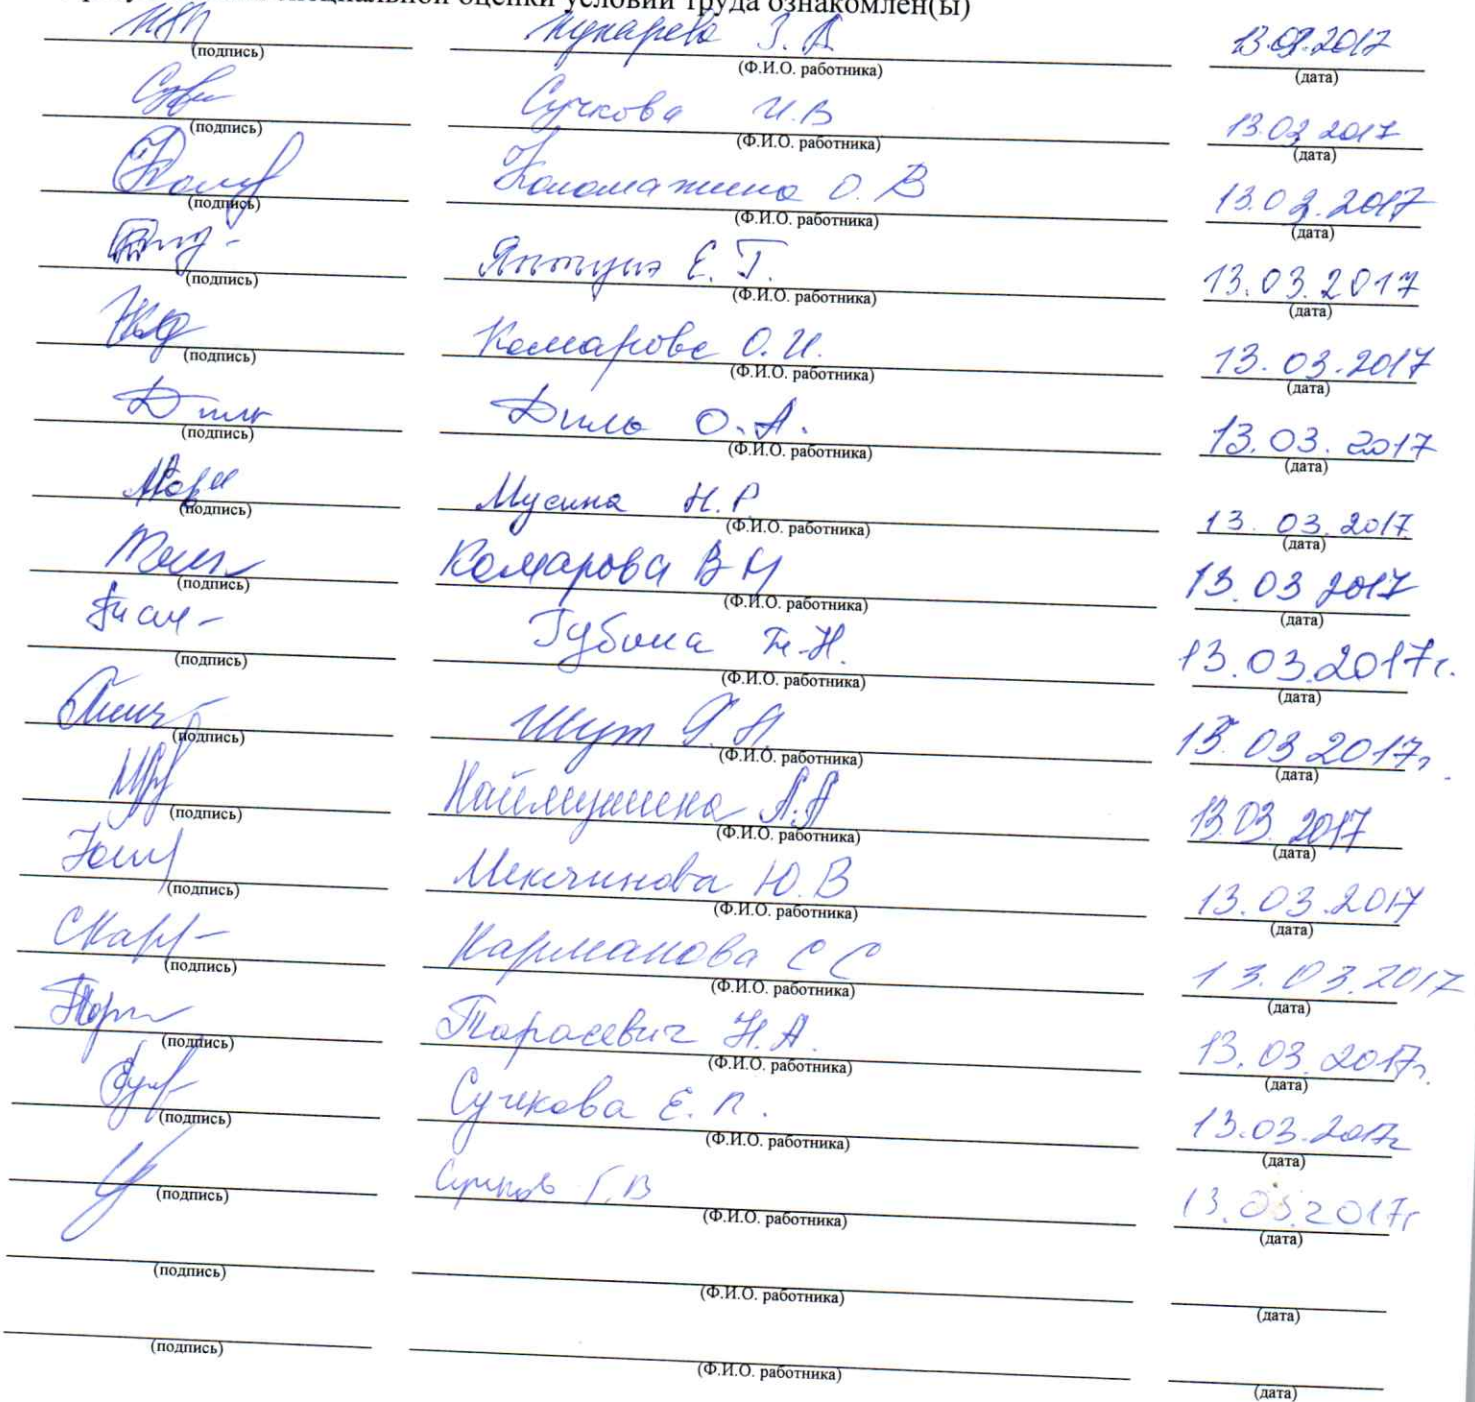 специальной оценки условий труда ознакомлен(ы)
З. А 13.03.2017
(подпись) (Ф.И.О. работника) (дата)
Сучкова И.В 13.03 2017
(подпись) (Ф.И.О. работника) (дата)
О. В 13.03.2017
(подпись) (Ф.И.О. работника) (дата)
Е. Г. 13.03.2017
(подпись) (Ф.И.О. работника) (дата)
Комарова О. И. 13.03.2017
(подпись) (Ф.И.О. работника) (дата)
Диль Диль О.А. 13.03.2017
(подпись) (Ф.И.О. работника) (дата)
Мусина Н.Р 13.03.2017
(подпись) (Ф.И.О. работника) (дата)
Комарова В И 13 03 2017
(подпись) (Ф.И.О. работника) (дата)
Губина 13.03.2017г.
(подпись) (Ф.И.О. работника) (дата)
Шут 13.03 2017г.
(подпись) (Ф.И.О. работника) (дата)
Наймушина А.А 13.03.2017
(подпись) (Ф.И.О. работника) (дата)
Ю. В 13.03.2017
(подпись) (Ф.И.О. работника) (дата)
СКарр- Карманова С С 13.03.2017
(подпись) (Ф.И.О. работника) (дата)
Тарасевич Н.А. 13.03.2017г.
(подпись) (Ф.И.О. работника) (дата)
Сучкова Е. П. 13.03.2017г
(подпись) (Ф.И.О. работника) (дата)
Сучков Г.В 13.03.2017г
(подпись) (Ф.И.О. работника) (дата)
(подпись) (Ф.И.О. работника) (дата)
(подпись) (Ф.И.О. работника) (дата)